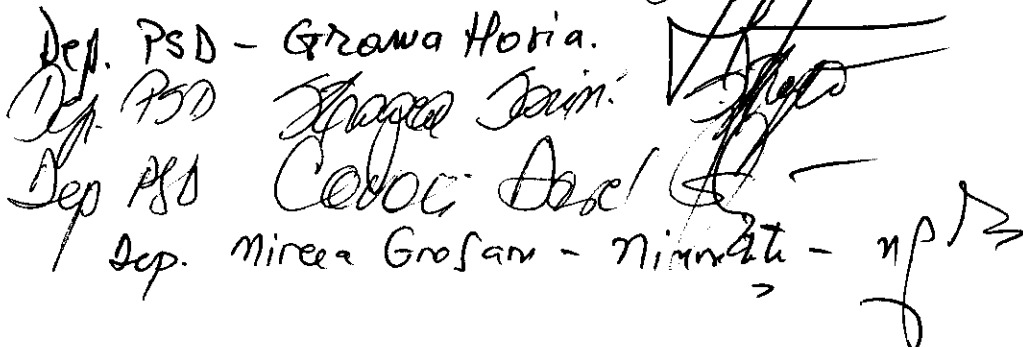 Dep. PSD - Grama Horia.
Dep. PSD Sorin.
Dep PSD Covaci Dorel
Dep. Mircea Grosaru - Minorități -